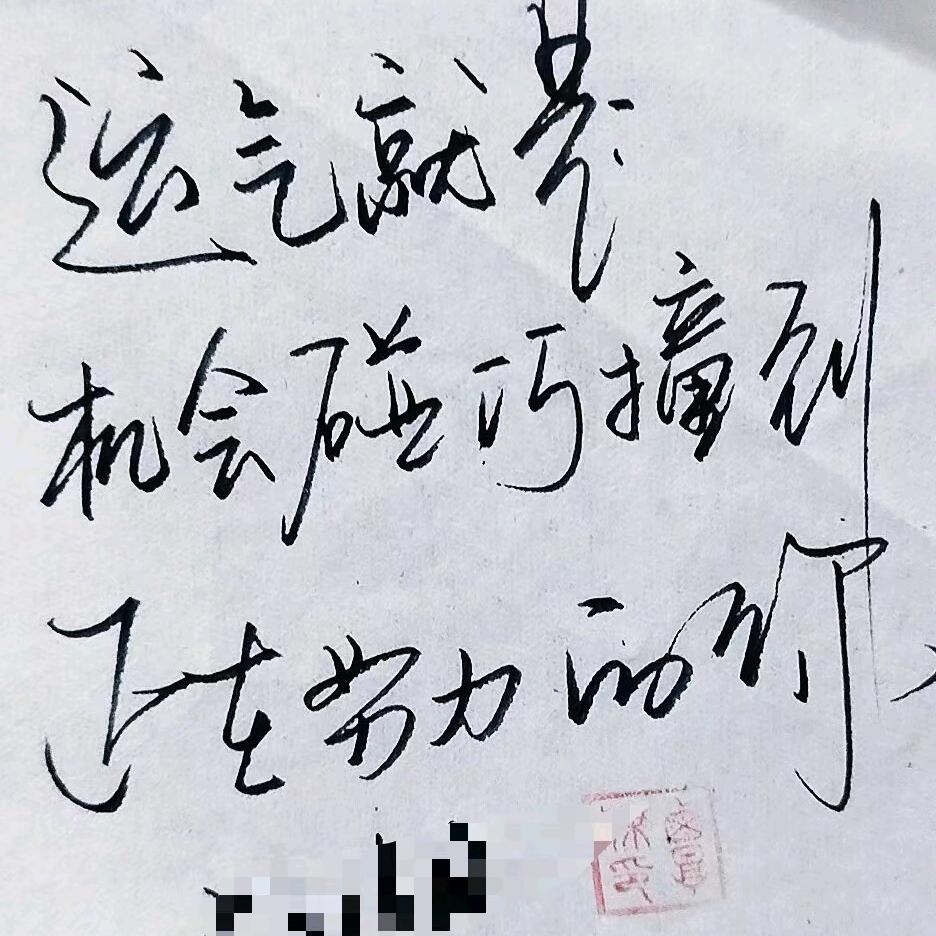 运气就是
机会碰巧撞到
正在努力的你